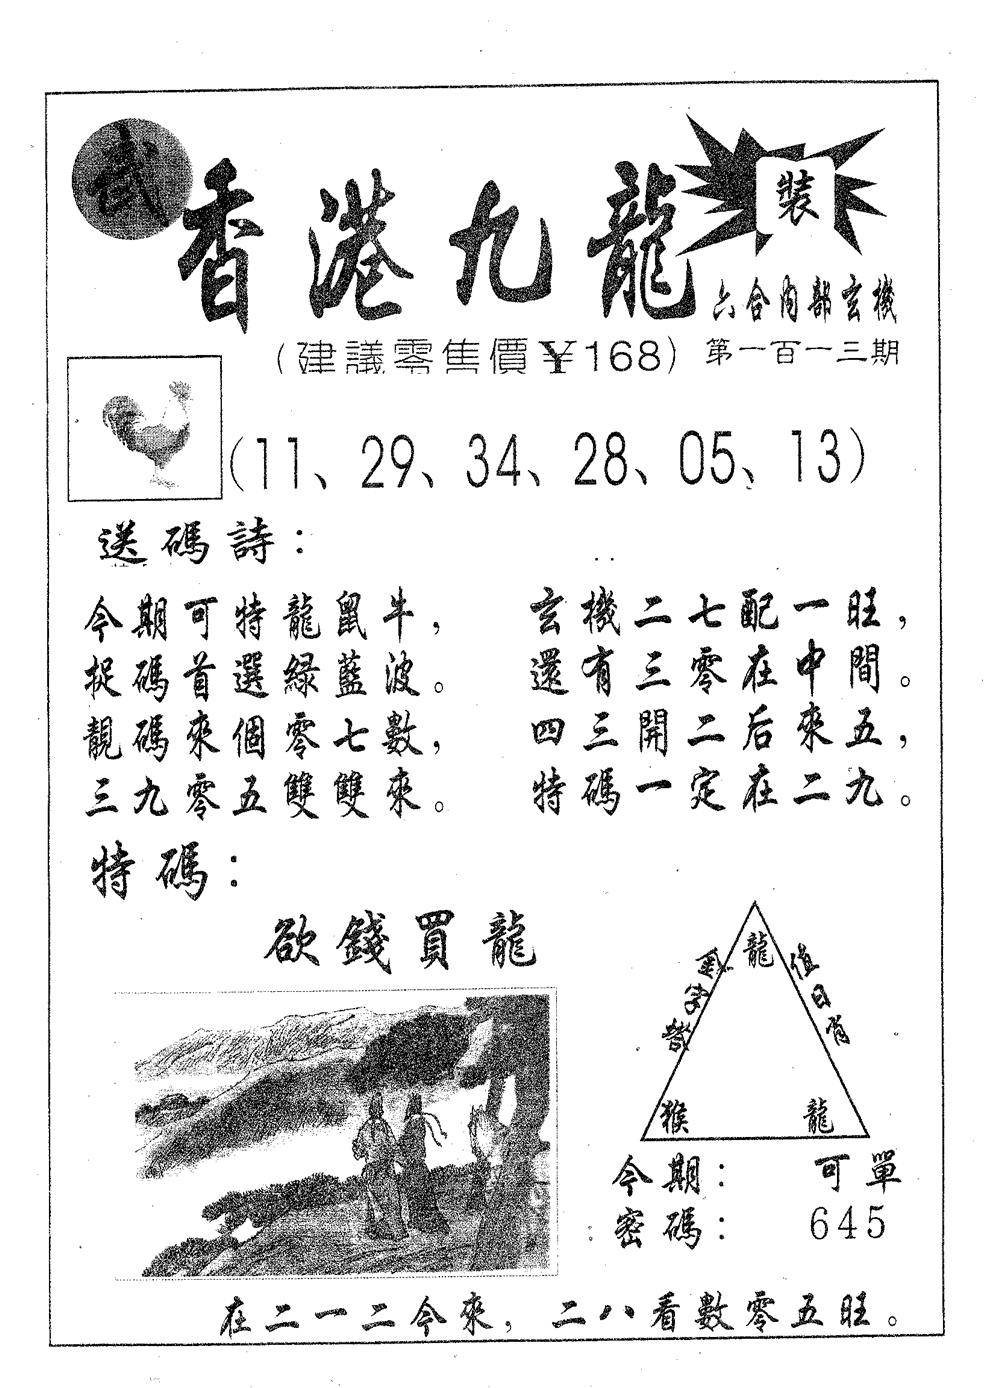 武
香港九龍
裝
六合內部玄機
（建議零售價￥168）
第一百一十三期
（11、29、34、28、05、13）
送碼詩：
今期可特龍鼠牛，
捉碼首選綠藍波。
靚碼來個零七數，
三九零五雙雙來。
玄機二七配一旺，
還有三零在中間。
四三開二后來五，
特碼一定在二九。
特碼：
欲錢買龍
龍
值日肖
猴
龍
今期：可單
密碼：645
在二一二今來，二八看數零五旺。